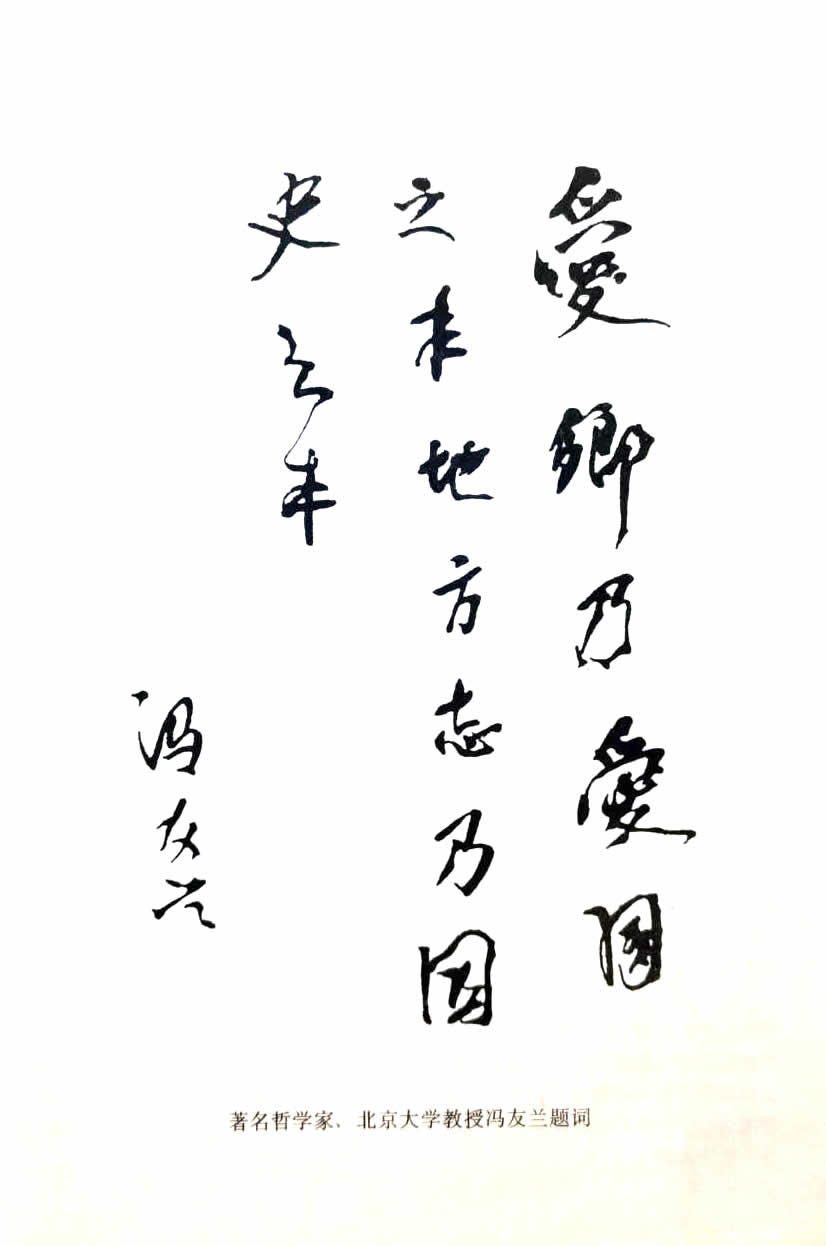 愛鄉乃愛國
之本地方志乃国
史之本
冯友兰
著名哲学家、北京大学教授冯友兰题词